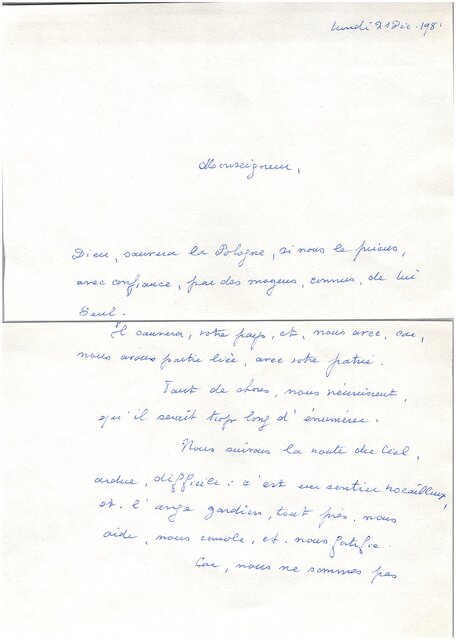 Lundi 21 Déc. 198
Monseigneur,
Dieu, sauvera la Pologne, si nous le prions,
avec confiance, par des moyens, connus, de lui
Seul.
Il sauvera, votre pays, et, nous avec, car,
nous avons partie liée, avec votre patrie.
Tant de choses, nous réunissent,
qu'il serait trop long d'énumérer.
Nous suivons la route du Ciel,
ardue, difficile : c'est un sentier rocailleux,
et l'ange gardien, tout près, nous
aide, nous console, et nous
Car, nous ne sommes pas